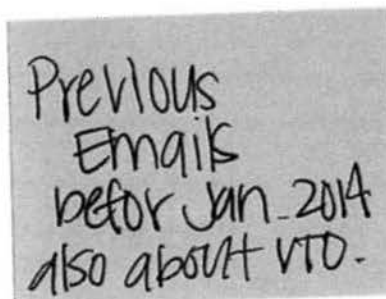 Previous
Emails
befor Jan. 2014
also about VTO.